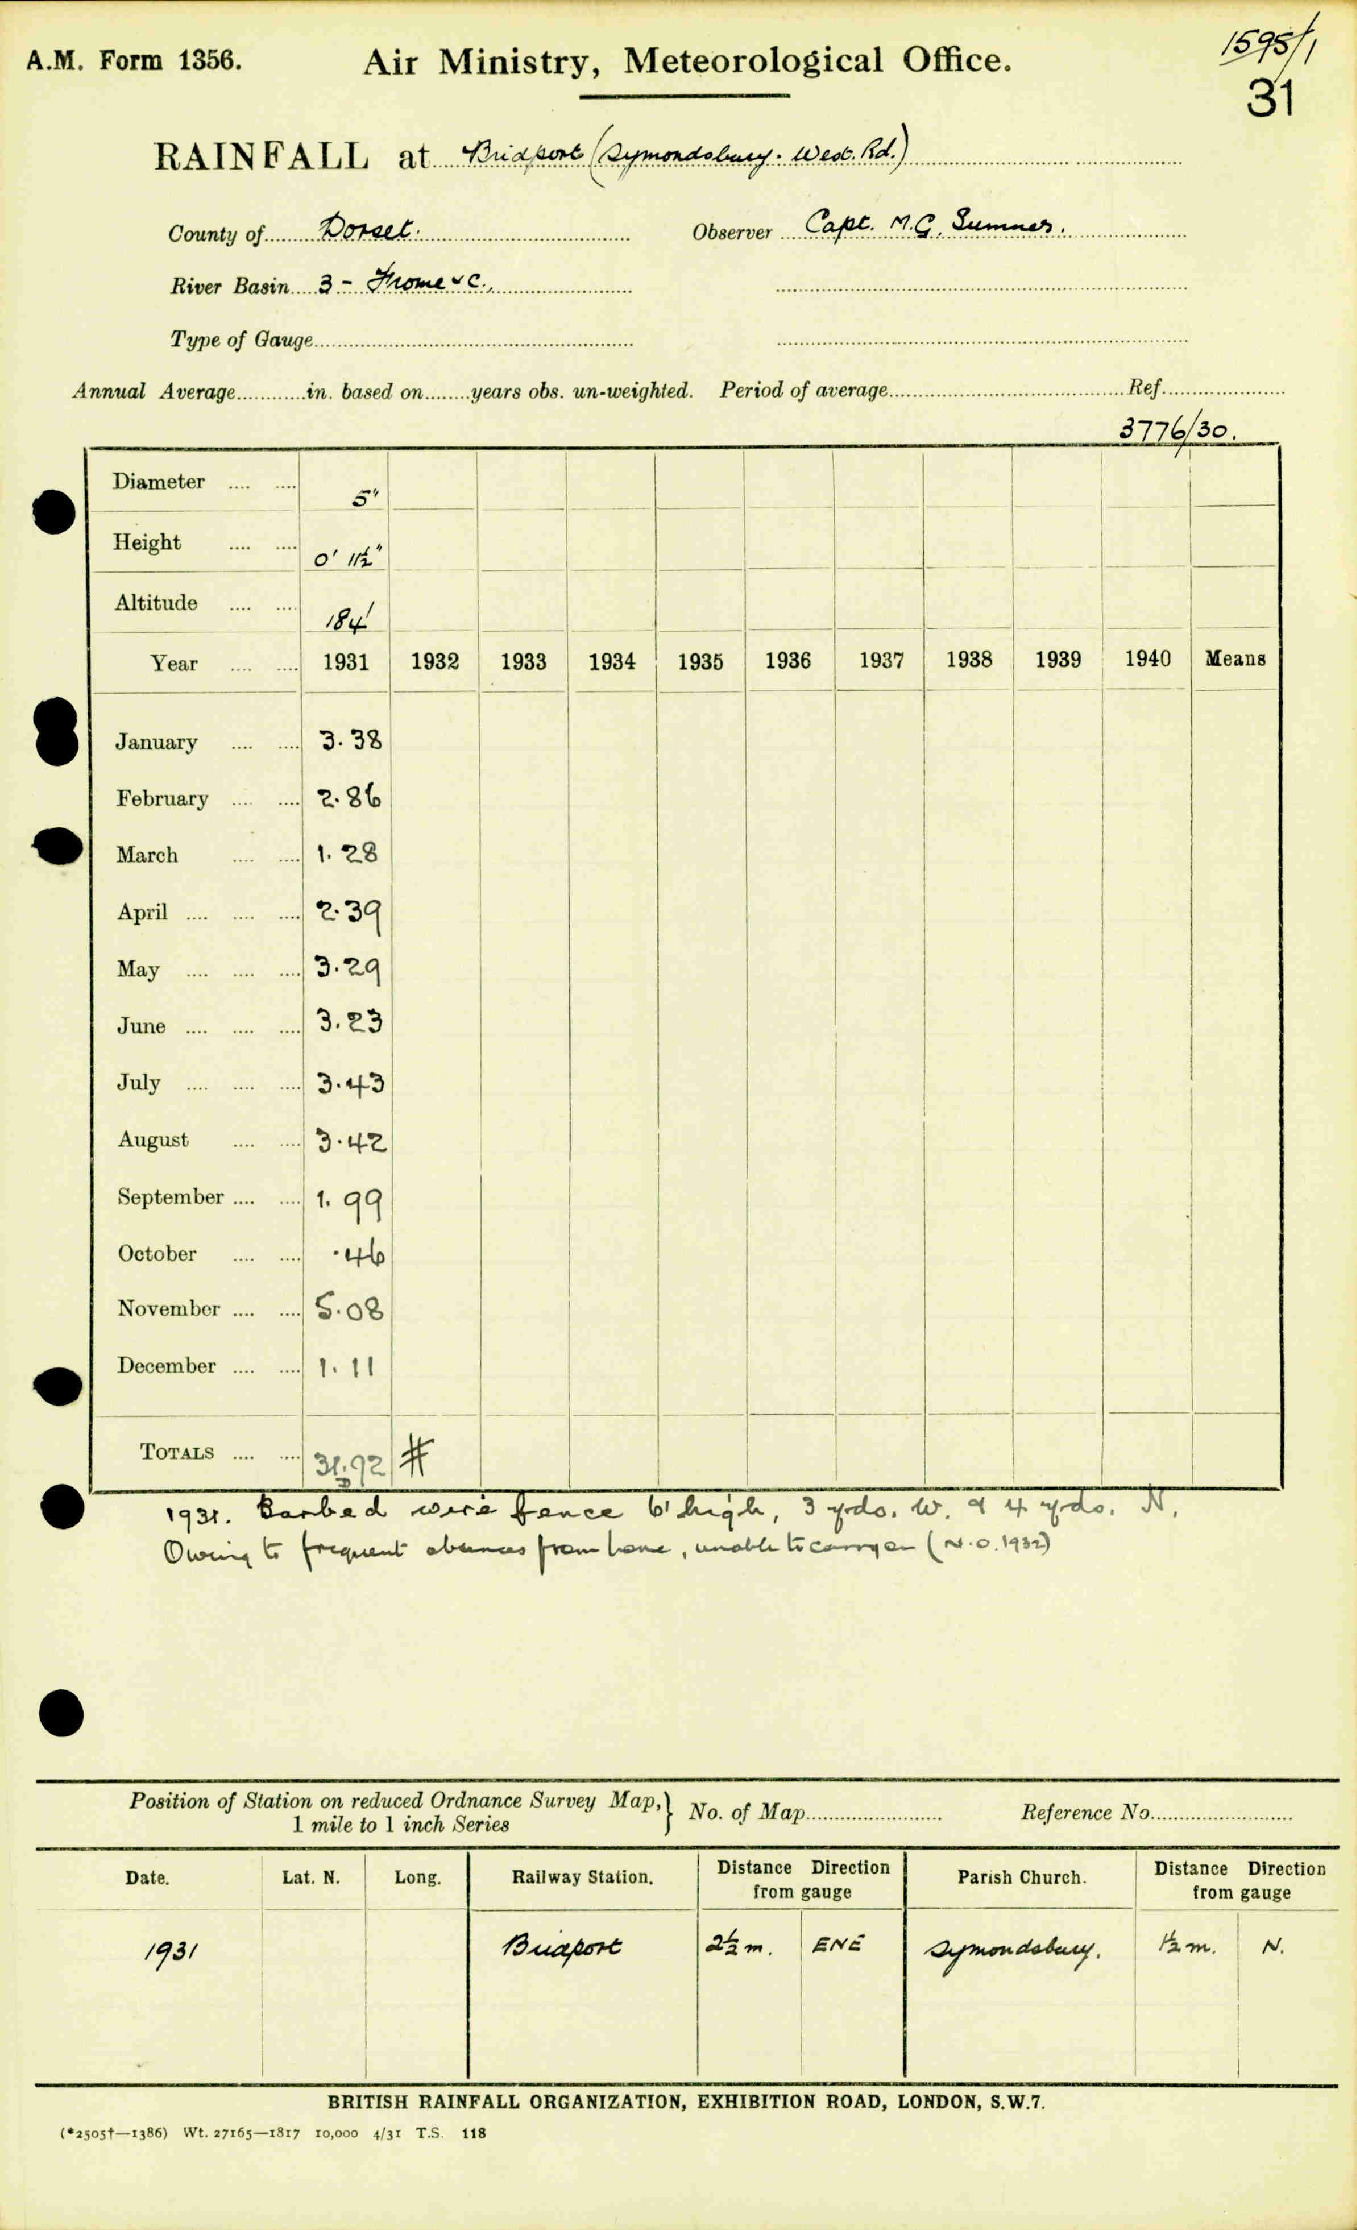 A.M. Form 1356. Air Ministry, Meteorological Office. 1595/1
31
RAINFALL at Bridport (Symondsbury. West. Rd.)
County of Dorset. Observer Capt. M.G. Sumner.
River Basin 3 - Frome &c.,
Type of Gauge
Annual Average in. based on years obs. un-weighted. Period of average Ref.
3776/30.
Diameter 5"
Height 0' 11½"
Altitude 184'
Year 1931 1932 1933 1934 1935 1936 1937 1938 1939 1940 Means
January 3.38
February 2.86
March 1.28
April 2.39
May 3.29
June 3.23
July 3.43
August 3.42
September 1.99
October .46
November 5.08
December 1.11
TOTALS 31.92 #
1931. Barbed wire fence 6' high, 3 yds. W. & 4 yds. N.
Owing to frequent absences from home, unable to carry on (N.O. 1932)
Position of Station on reduced Ordnance Survey Map,} No. of Map Reference No.
1 mile to 1 inch Series
Date. Lat. N. Long. Railway Station. Distance Direction from gauge Parish Church. Distance Direction from gauge
1931 Bridport 2½ m. ENE Symondsbury. 1½ m. N.
BRITISH RAINFALL ORGANIZATION, EXHIBITION ROAD, LONDON, S.W.7.
(*2505†—1386) Wt. 27165—1817 10,000 4/31 T.S. 118